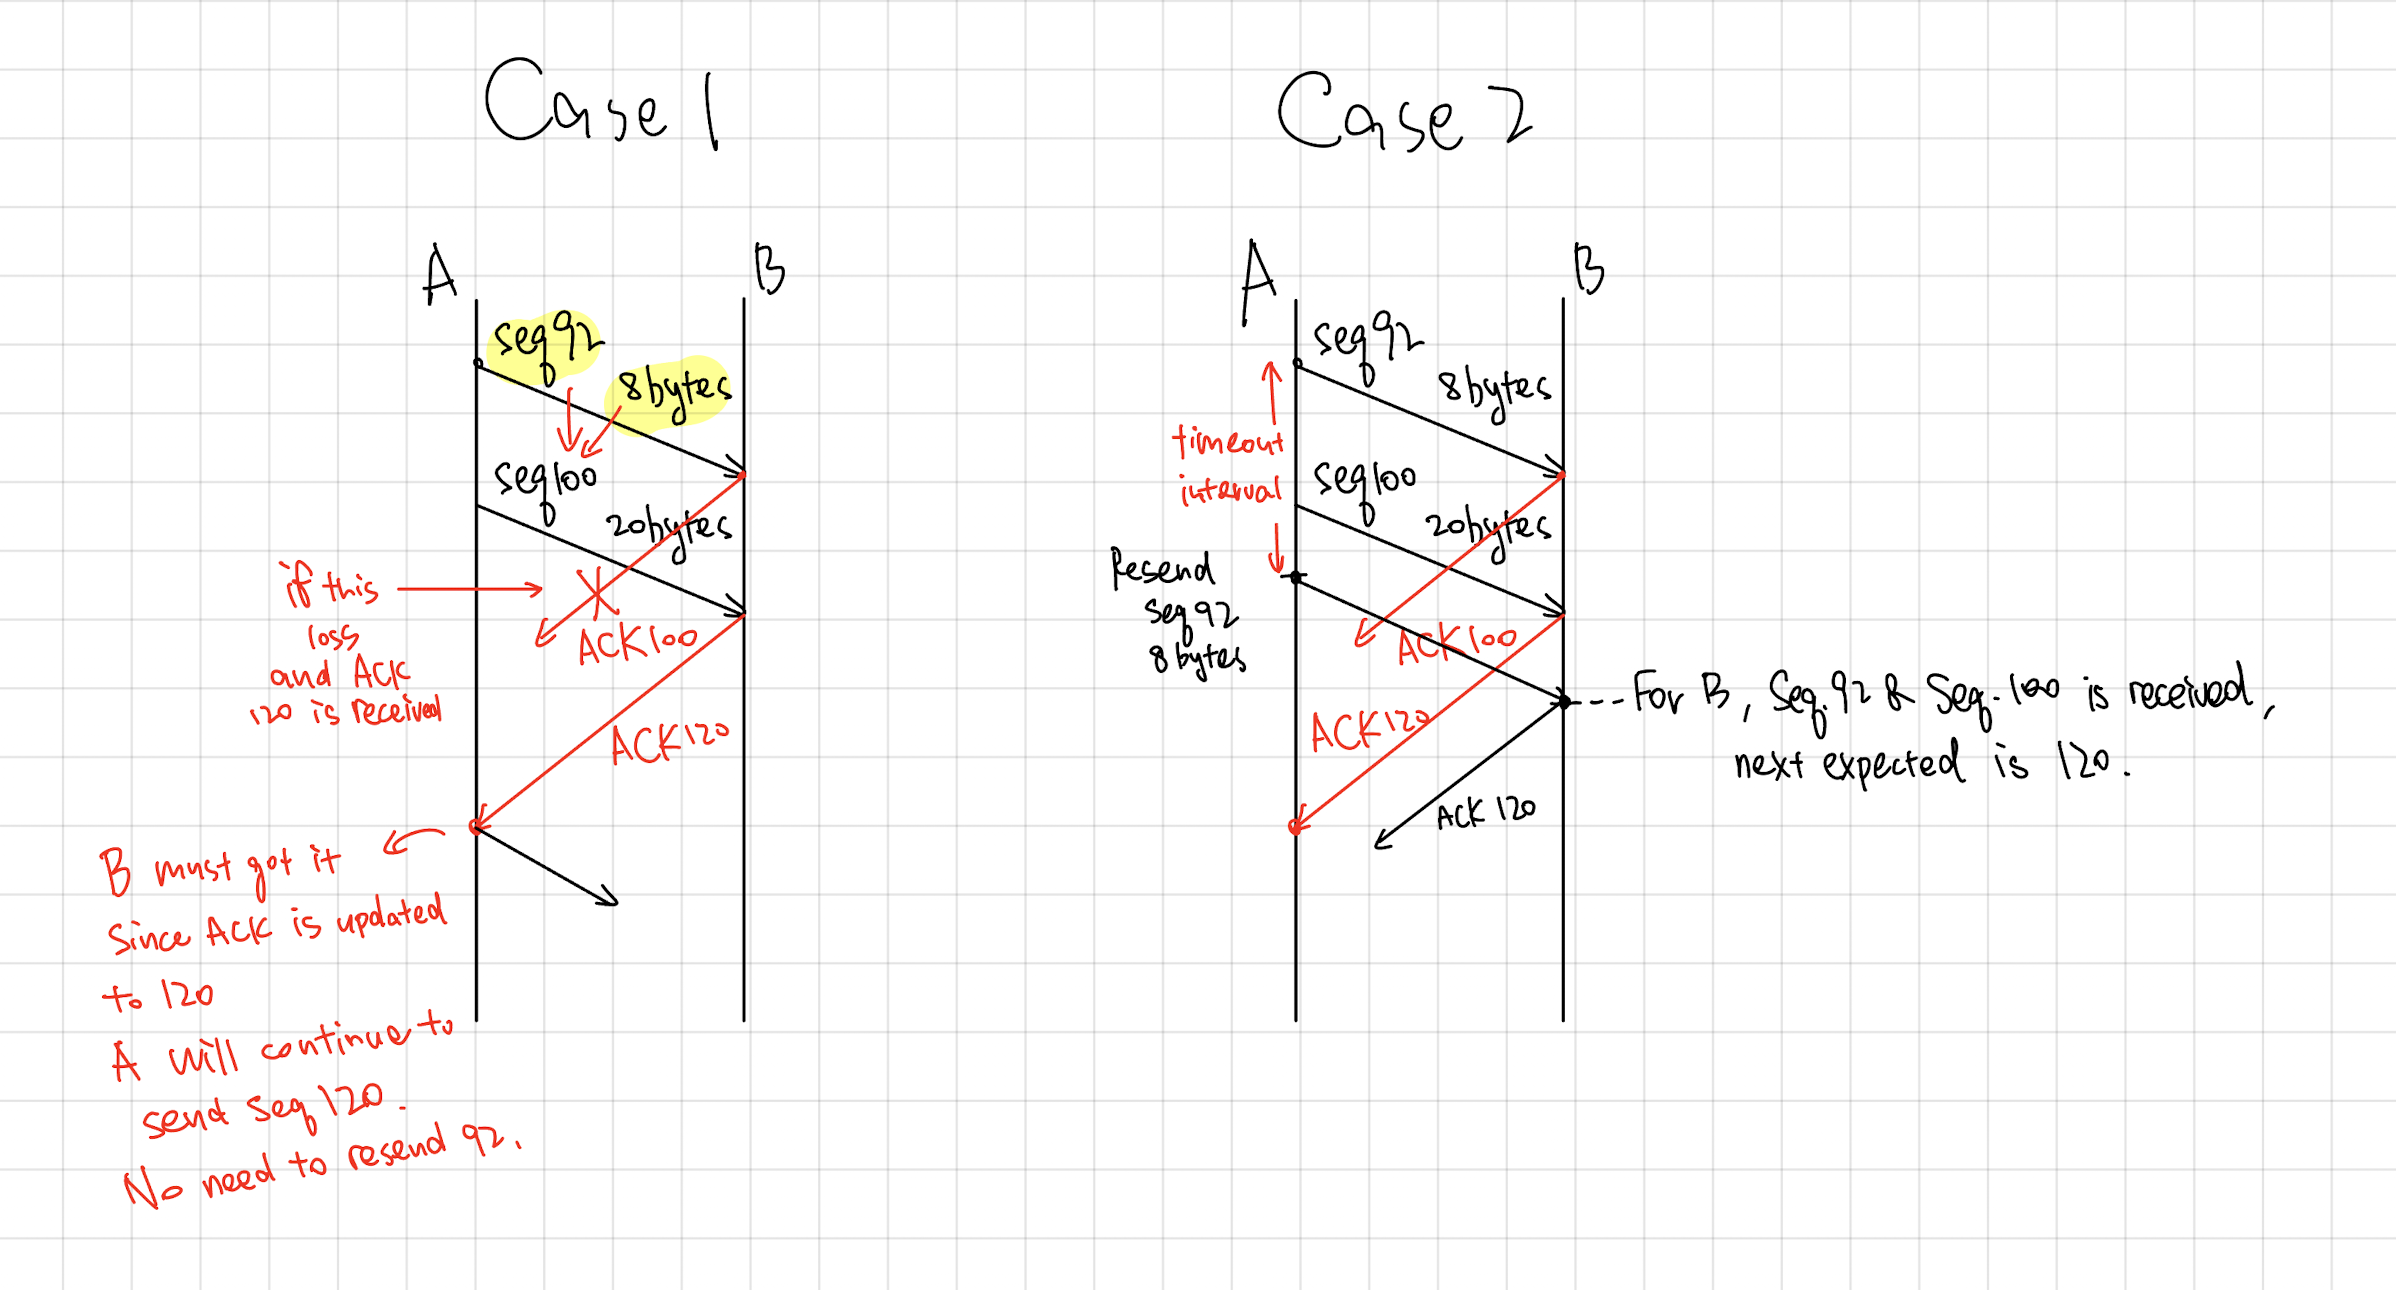 Case 1
A
B
seq 92
8 bytes
seq 100
20 bytes
if this
loss
and ACK
120 is received
ACK 100
ACK 120
B must got it
Since ACK is updated
to 120
A will continue to
send seq 120.
No need to resend 92.
Case 2
A
B
seq 92
8 bytes
timeout
interval
seq 100
20 bytes
Resend
seq 92
8 bytes
ACK 100
ACK 120
ACK 120
--- For B, Seq. 92 & Seq. 100 is received,
next expected is 120.